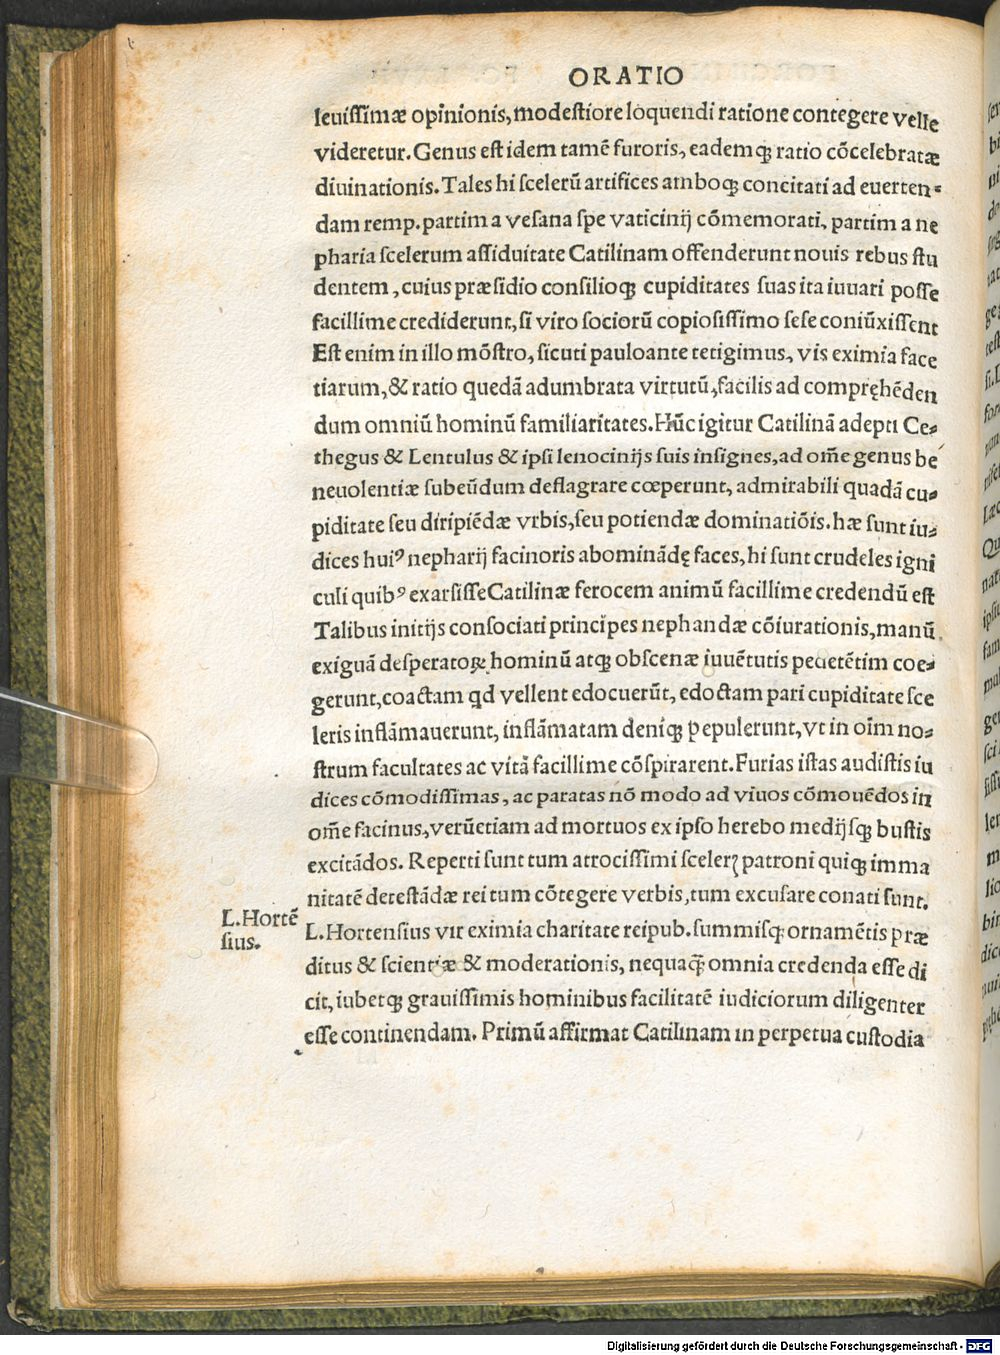 ORATIO
leuissimæ opinionis, modestiore loquendi ratione contegere velle
videretur. Genus est idem tamē furoris, eademq̃ ratio cōcelebratæ
diuinationis. Tales hi scelerū artifices amboq̃ concitati ad euerten-
dam remp. partim a vesana spe vaticinij cōmemorati, partim a ne
pharia scelerum assiduitate Catilinam offenderunt nouis rebus stu
dentem, cuius præsidio consilioq̃ cupiditates suas ita iuuari posse
facillime crediderunt, si viro sociorū copiosissimo sese coniūxissent
Est enim in illo mōstro, sicuti pauloante tetigimus, vis eximia face
tiarum, & ratio quedā adumbrata virtutū, facilis ad compręhēden
dum omniū hominū familiaritates. Hūc igitur Catilinā adepti Ce-
thegus & Lentulus & ipsi lenocinijs suis insignes, ad om̄e genus be
neuolentiæ subeūdum deflagrare cœperunt, admirabili quadā cu-
piditate seu diripiēdæ vrbis, seu potiendæ dominatiōis. hæ sunt iu-
dices huiꝰ nepharij facinoris abominādę faces, hi sunt crudeles igni
culi quibꝰ exarsisse Catilinæ ferocem animū facillime credendū est
Talibus initijs consociati principes nephandæ cōiurationis, manū
exiguā desperatoꝝ hominū atq̃ obscenæ iuuētutis pedetētim coe-
gerunt, coactam qd vellent edocuerūt, edoctam pari cupiditate sce
leris inflāmauerunt, inflāmatam deniq̃ ꝑepulerunt, vt in oīm no-
strum facultates ac vitā facillime cōspirarent. Furias istas audistis iu
dices cōmodissimas, ac paratas nō modo ad viuos cōmouēdos in
om̄e facinus, verūetiam ad mortuos ex ipso herebo medijsq̃ bustis
excitādos. Reperti sunt tum atrocissimi scelerꝝ patroni quiq̃ imma
nitatē detestādæ rei tum cōtegere verbis, tum excusare conati sunt.
L. Hortē
sius.
L. Hortensius vir eximia charitate reipub. summisq̃ ornamētis præ
ditus & scientiæ & moderationis, nequaq̄ omnia credenda esse di
cit, iubetq̃ grauissimis hominibus facilitatē iudiciorum diligenter
esse continendam. Primū affirmat Catilinam in perpetua custodia
Digitalisierung gefördert durch die Deutsche Forschungsgemeinschaft - DFG